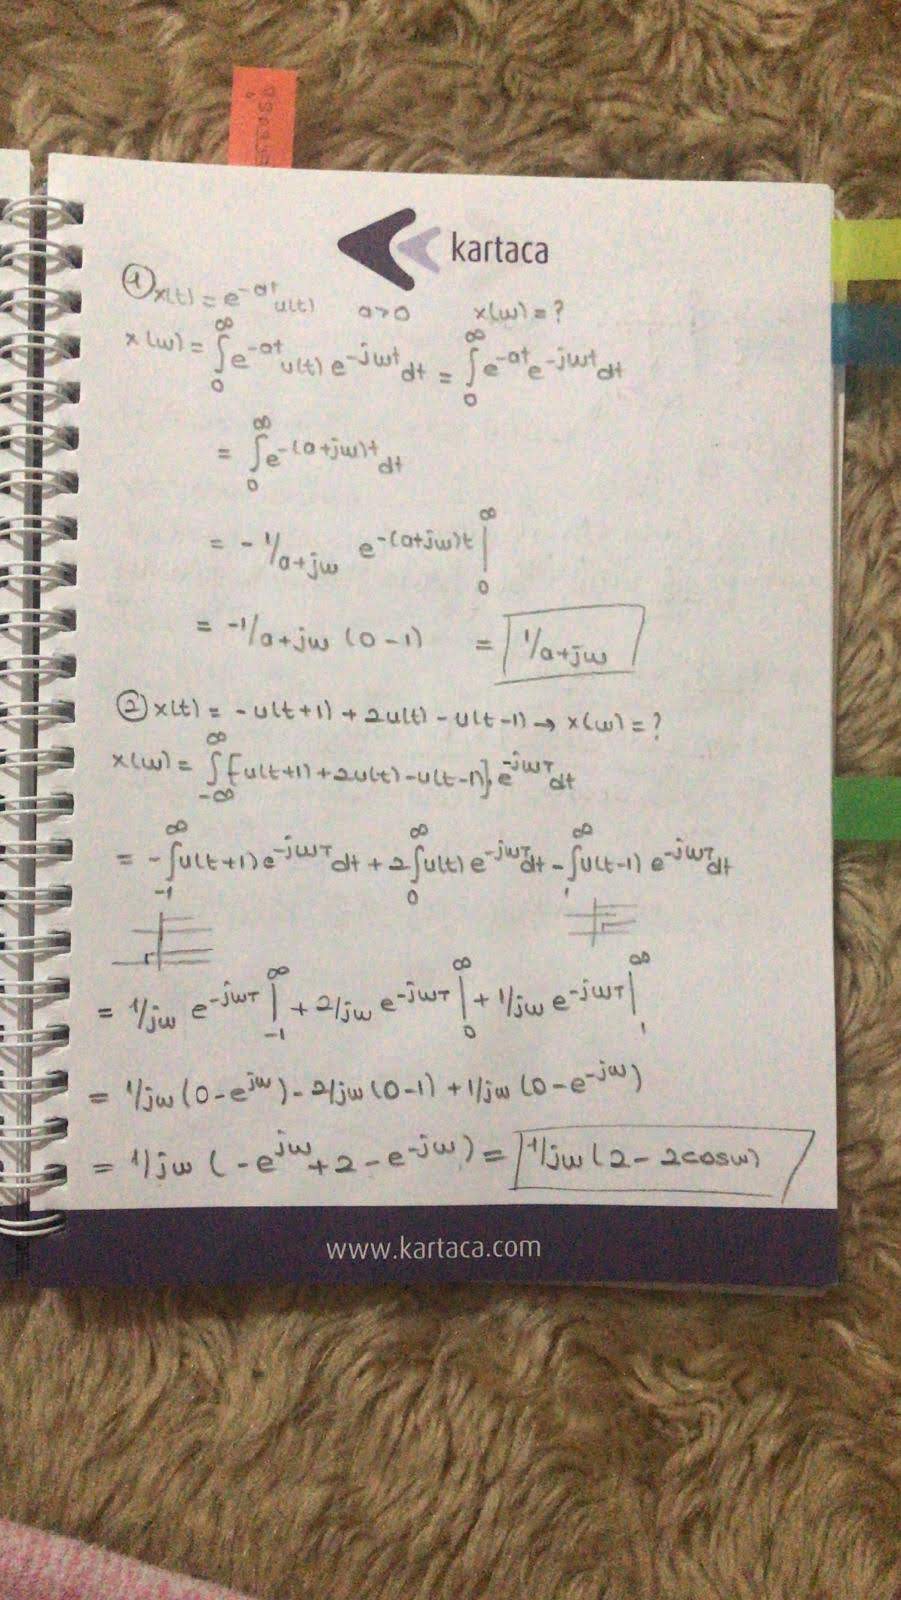 kartaca
① x(t) = e^-at u(t) a>0 x(w) = ?
x(w) = ∫₀^∞ e^-at u(t) e^-jwt dt = ∫₀^∞ e^-at e^-jwt dt
= ∫₀^∞ e^-(a+jw)t dt
= - 1/a+jw e^-(a+jw)t |₀^∞
= -1/a+jw (0-1) = 1/a+jw
② x(t) = -u(t+1) + 2u(t) - u(t-1) → x(w) = ?
x(w) = ∫₋∞^∞ [-u(t+1) + 2u(t) - u(t-1)] e^-jwT dt
= -∫₋₁^∞ u(t+1) e^-jwT dt + 2∫₀^∞ u(t) e^-jwT dt - ∫₁^∞ u(t-1) e^-jwT dt
= 1/jw e^-jwT |₋₁^∞ + 2/jw e^-jwT |₀^∞ + 1/jw e^-jwT |₁^∞
= 1/jw (0-e^jw) - 2/jw (0-1) + 1/jw (0-e^-jw)
= 1/jw (-e^jw + 2 - e^-jw) = 1/jw (2 - 2cosw)
www.kartaca.com